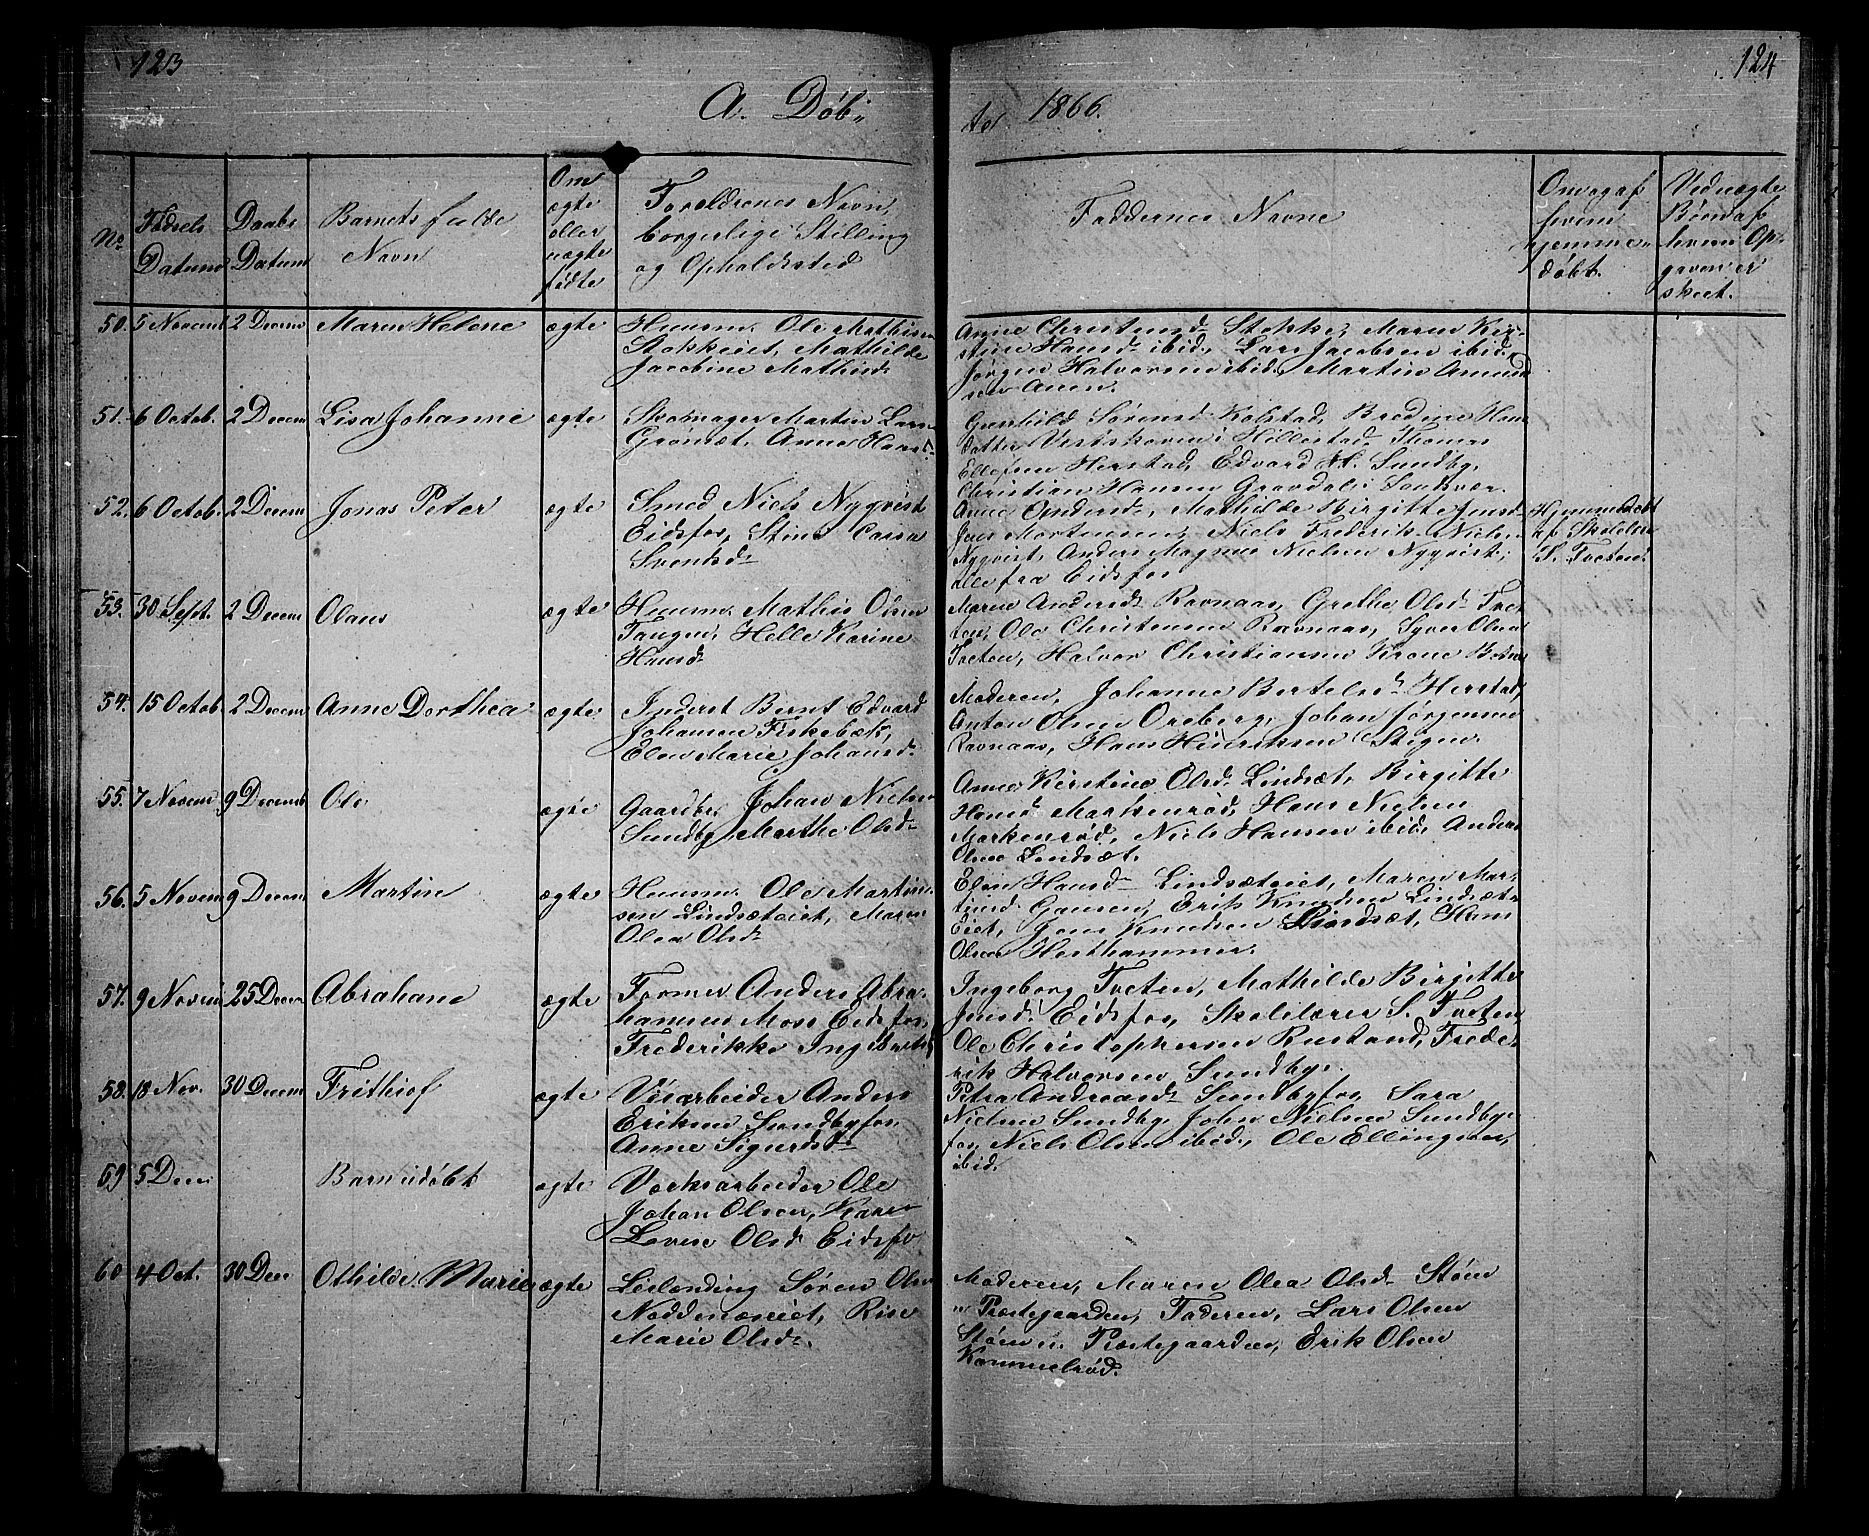 123
124
A. Døb-
te 1866.
No
Fødsels Datum
Daabs Datum
Barnets fulde Navn
Om ægte eller uægte fødte
Forældrenes Navn, borgerlige Stilling og Opholdssted
Faddernes Navne
Om og af hvem hjemme- døbt.
Ved uægte Børn af hvem Op- gaven er skeet.
50. 5 Novem 2 Decem Maren Helene ægte Huusm. Ole Mathisen
Stokkeiet, Mathilde
Jacobine Mathisd.
Anne Christensd. Stokke, Maren Kir-
stine Hansd. ibid., Lars Jacobsen ibid.
Jørgen Halvorsen ibid., Martin Amund
sen Auen.
51. 6 Octob. 2 Decem Lisa Johanne ægte Skomager Martin Lars
Grønsæt, Anne Hansd.
Gunhild Sørensd. Kolstad, Bredine Hans
datter Vestskoven i Hillestad, Thomas
Ellefsen Herstad, Edvard H. Sundby,
Christian Hansen Gravdal i Sandsvær.
52. 6 Octob. 2 Decem Jonas Peter ægte Smed Niels Nyqvist
Eidsfos, Stine Caisa
Svensd.
Anne Andersd., Mathilde Birgitte Jensd.
Jens Mortensen, Niels Frederik Nielsen
Nyqvist, Anders Magnus Nielsen Nyqvist,
alle fra Eidsfos.
Hjemmedøbt
af Skolelærer
S. Tveten.
53. 30 Sept. 2 Decem Olaus ægte Huusm. Mathis Olsen
Tangen, Helle Karine
Hansd.
Maren Andersd. Ravnaas, Grethe Olsd. Tve-
ten, Ole Christensen Ravnaas, Syver Olsen
Tveten, Halvor Christiansen Krone
54. 15 Octob 2 Decem Anne Dorthea ægte Inderst Bernt Edvard
Johansen Fiskebæk,
Elen Marie Johansd.
Moderen, Johanne Bertelsd. Herstad,
Anton Olsen Oreberg, Johan Jørgensen
Ravnaas, Hans Henriksen Stigen.
55. 7 Novem 9 Decemb Ole ægte Gaardbr. Johan Nielsen
Sundby, Marthe Olsd.
Anne Kirstine Olsd. Lindsæt, Birgitte
Hansd. Markenrød, Hans Nielsen
Markenrød, Niels Hansen ibid., Anders
Olsen Lindsæt.
56. 5 Novem 9 Decem Martin ægte Huusm. Ole Martin-
sen Lindsæteiet, Maren
Olea Olsd.
Elen Hansd. Lindsæteiet, Maren Mar-
tinsd. Gausen, Erik Knudsen Lindsæt-
eiet, Jens Knudsen Lindsæt,
Olsen Hesthammer.
57. 9 Novem 25 Decem Abraham ægte Former Anders Abra-
hamsen Moss Eidsfos,
Frederikke
Ingeborg Tveten, Mathilde Birgitte
Jensd. Eidsfos, Skolelærer S. Tveten,
Ole Christophersen Rustand, Frede-
rik Halvorsen Sundby.
58. 18 Nov. 30 Decem Frithiof ægte Veiarbeider Anders
Eriksen Sundbyfos,
Anne Sigurdsd.
Petra Andreasd. Sundbyfos, Sara
Nielsen Sundby, John Nielsen Sundby-
fos, Niels Olsen ibid., Ole Ellingsen,
ibid.
59 5 Decem Barn udøbt ægte Værksarbeider Ole
Johan Olsen, Karen
Lovise Olsd. Eidsfos
60 4 Oct. 30 Dec Othilde Marie ægte Leilænding Søren Olsen
Noddenæseiet, Rise
Marie Olsd.
Moderen, Maren Olea Olsd. Støen
u. Præstegaarden, Faderen, Lars Olsen
Støen u. Præstegaarden, Erik Olsen
Kammelrød.